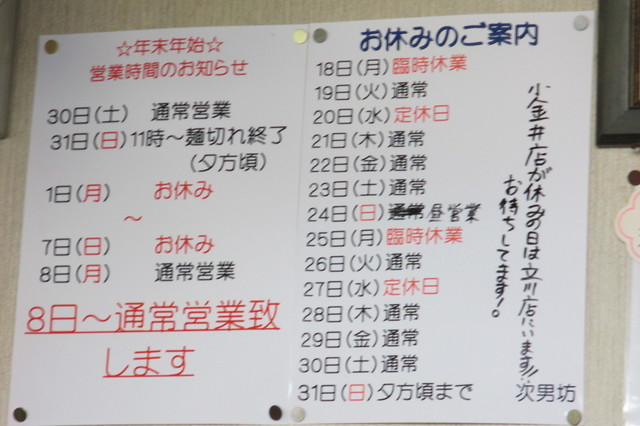 ☆年末年始☆
営業時間のお知らせ
30日(土) 通常営業
31日(日)11時～麺切れ終了
(夕方頃)
1日(月) お休み
～
7日(日) お休み
8日(月) 通常営業
8日～通常営業致
します
お休みのご案内
18日(月)臨時休業
19日(火)通常
20日(水)定休日
21日(木)通常
22日(金)通常
23日(土)通常
24日(日)通常昼営業
25日(月)臨時休業
26日(火)通常
27日(水)定休日
28日(木)通常
29日(金)通常
30日(土)通常
31日(日)夕方頃まで 次男坊
小金井店が休みの日は立川店にいます!!
お待ちしてます!。